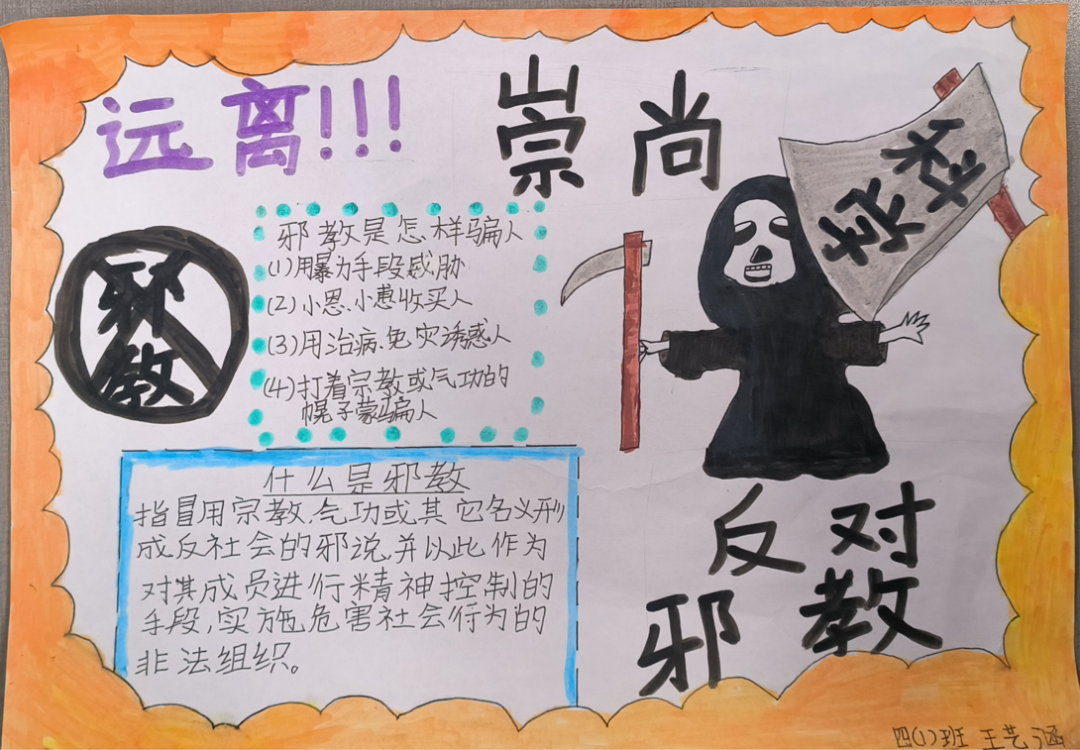 远离!!!
崇尚
科学
邪教
邪教是怎样骗人
(1)用暴力手段威胁
(2)小恩、小惠收买人
(3)用治病、免灾诱惑人
(4)打着宗教或气功的
幌子蒙骗人
什么是邪教
指冒用宗教、气功或其它名义形
成反社会的邪说,并以此作为
对其成员进行精神控制的
手段,实施危害社会行为的
非法组织。
反对
邪教
四(1)班 王艺涵